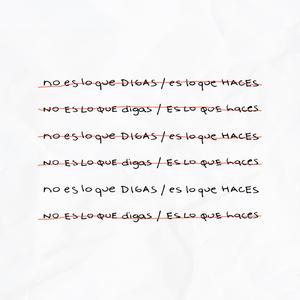 no es lo que DIGAS / es lo que HACES
NO ES LO QUE digas / ES LO QUE haces
no es lo que DIGAS / es lo que HACES
NO ES LO QUE digas / ES LO QUE haces
no es lo que DIGAS / es lo que HACES
NO ES LO QUE digas / ES LO QUE haces